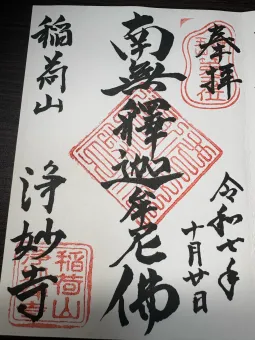 奉拝
令和七年
十月廿日
南無釋迦牟尼佛
稲荷山
浄妙寺
稲荷山